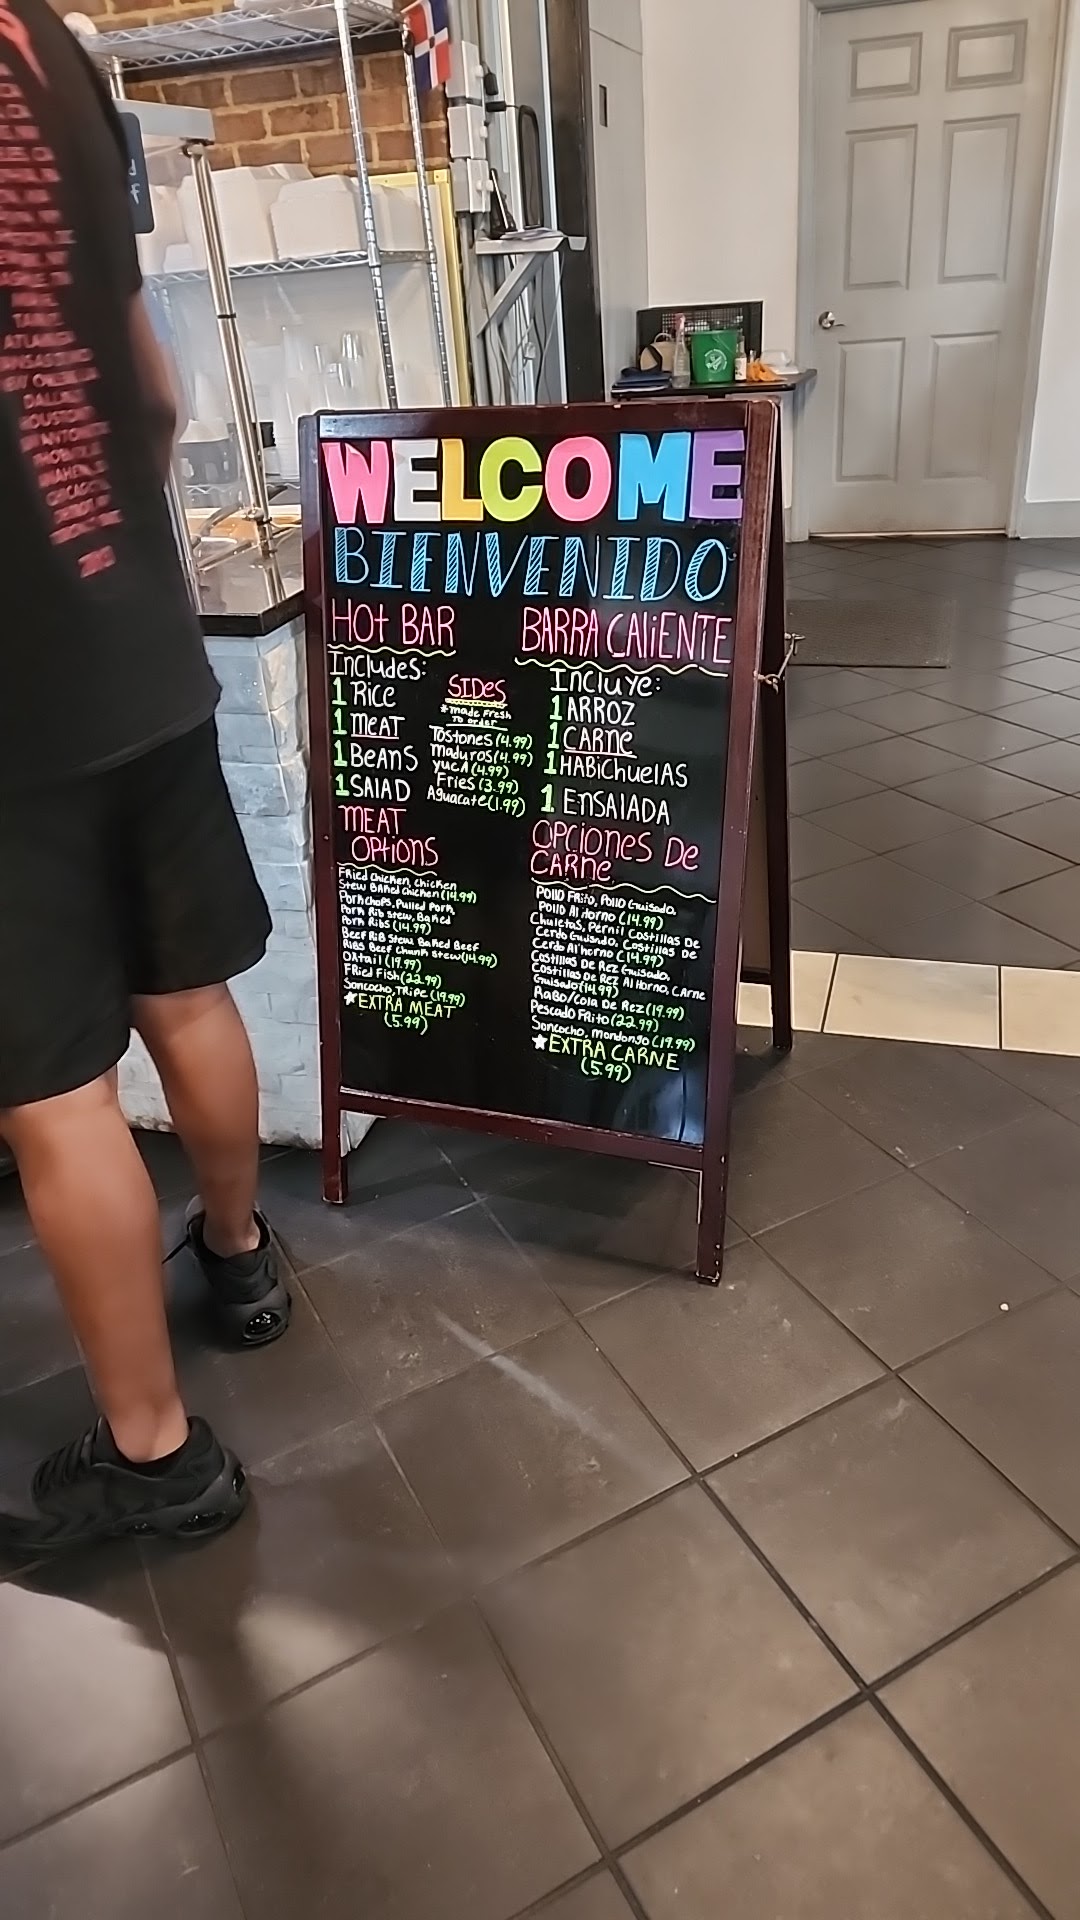 WELCOME
BIENVENIDO
HOt BAR
Includes:
1 Rice
1 MEAT
1 BEANS
1 SALAD
SIDES
*made Fresh
To order
Tostones (4.99)
maduros (4.99)
yucA (4.99)
Fries (3.99)
Aguacate (1.99)
MEAT
OPtions
Fried chicken, chicken
Stew BAked chicken (14.99)
Porkchops, Pulled Pork,
Pork Rib stew, BAked
Pork Ribs (14.99)
Beef RiB Stew BaKed Beef
RiBs Beef Chunk stew (14.99)
OXtail (19.99)
FRied Fish (22.99)
Soncocho, TRipe (19.99)
EXTRA MEAT
(5.99)
BARRA CALiENTE
Incluye:
1 ARROZ
1 CARNe
1 HABichuelAS
1 EnSALADA
OPCIONES De
CARNe
Pollo Frito, Pollo Guisado,
Pollo Al Horno (14.99)
Chuletas, Pernil Costillas De
Cerdo Guisado, Costillas De
Cerdo Al horno (14.99)
Costillas De Rez Guisado,
Costillas De Rez Al Horno, CArne
Guisado (14.99)
RaBo/Cola De Rez (19.99)
Pescado FRito (22.99)
Soncocho, mondongo (19.99)
EXTRA CARNE
(5.99)
ATLANTA
DALLAS